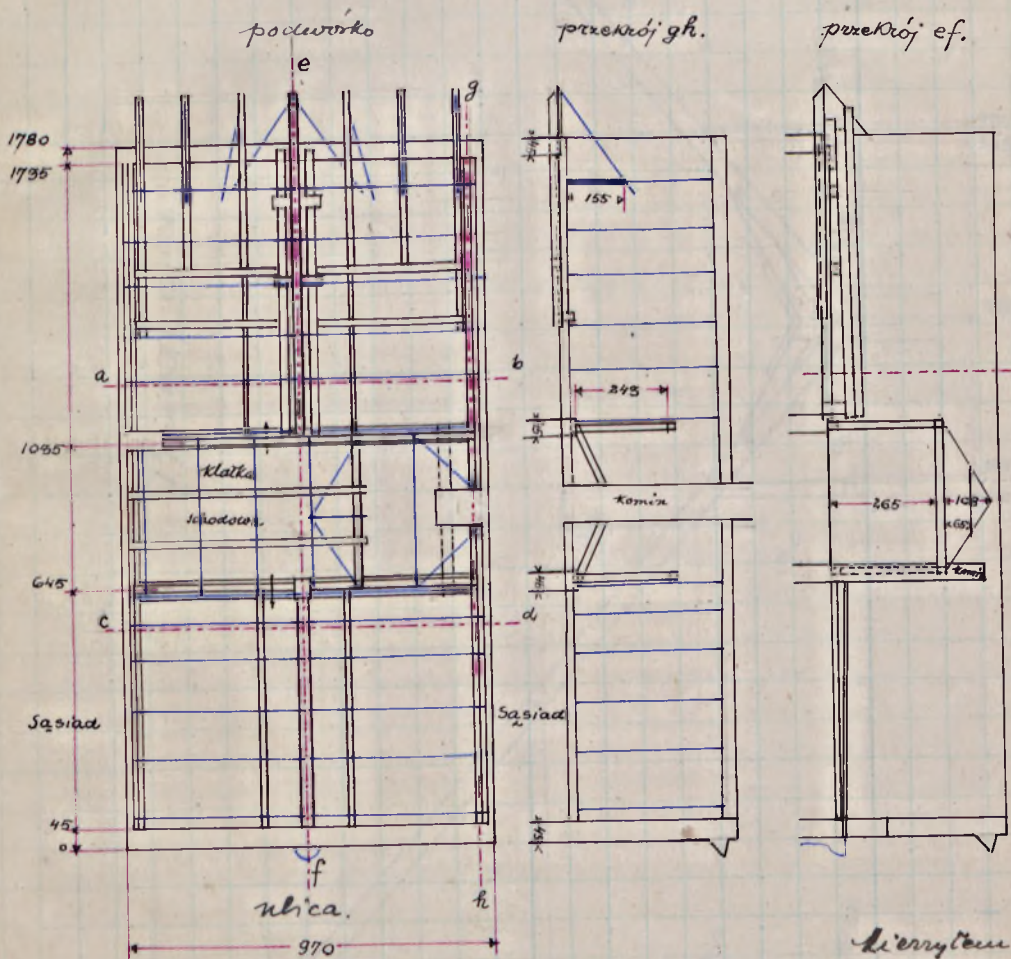 podwórko
przekrój gh.
przekrój ef.
e
g
1780
1735
155
a
b
243
1085
Klatka
schodowa
Komin
265
108
65
Komin
645
c
d
Sąsiad
Sąsiad
45
0
f
ulica.
h
970
Mierzyłem